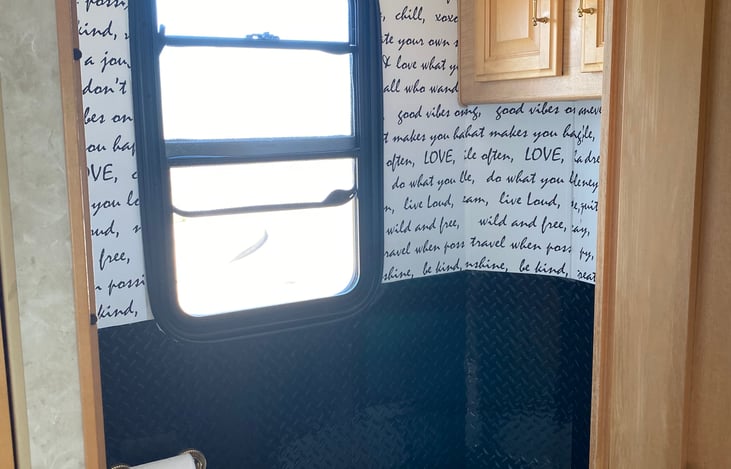 possi, chill, xoxo
kind, ate your own s
a jou & love what y
don't all who wand
bes on good vibes o ng, good vibes on
ou hap t makes you ha hat makes you ha
OVE, often, LOVE, ile often, LOVE,
do what you l le, do what you l
you lo n, live Loud, eam, live Loud,
ud, wild and free, wild and free,
free, ravel when poss travel when poss
n possi shine, be kind, nshine, be kind,
kind,